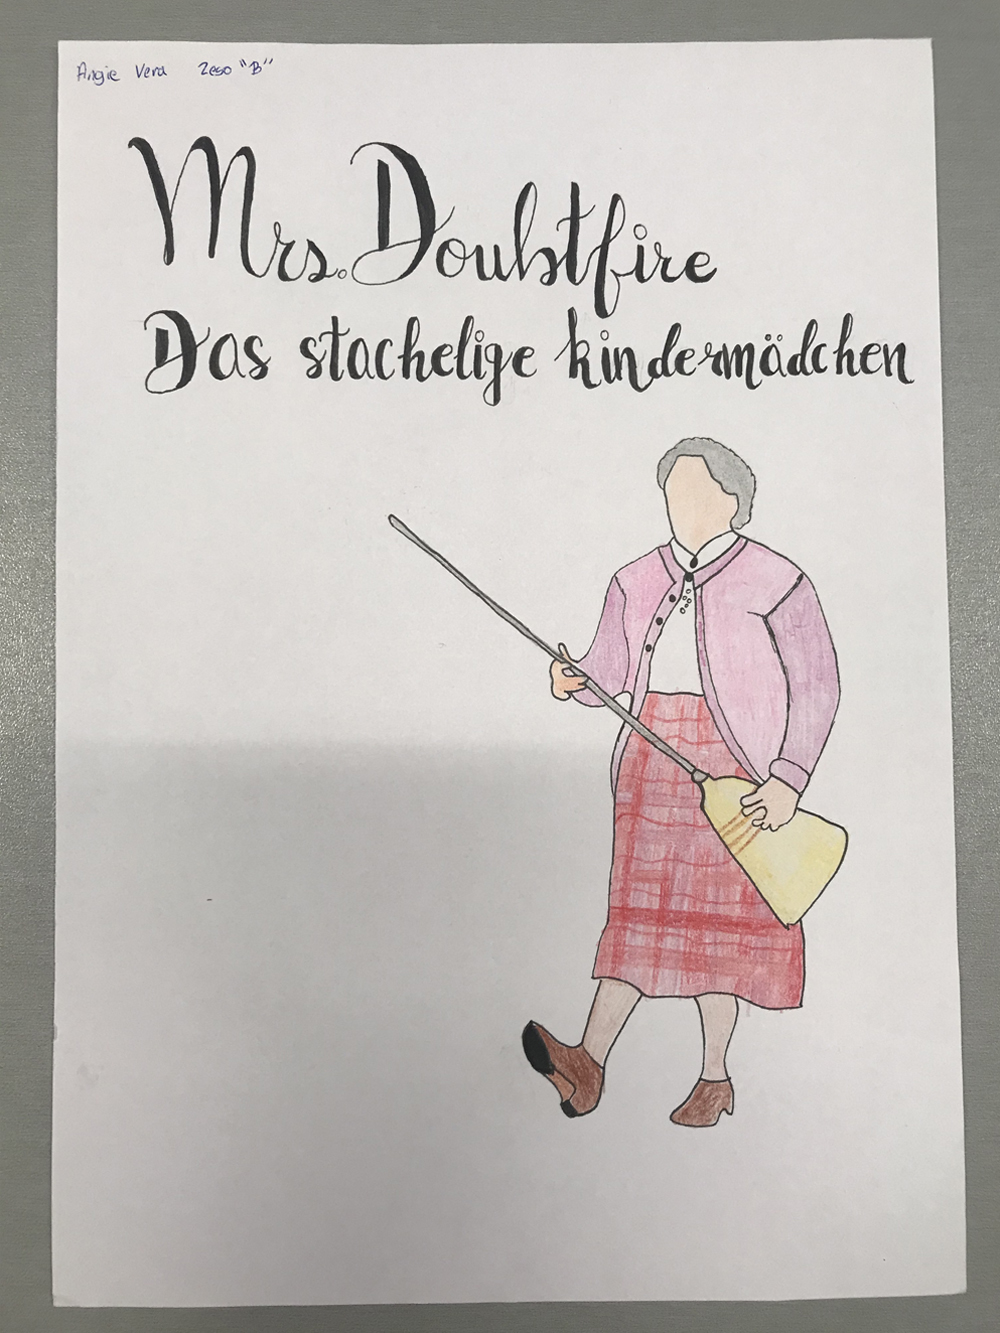 Angie Vera 2eso "B"
Mrs. Doubstfire
Das stachelige kindermädchen